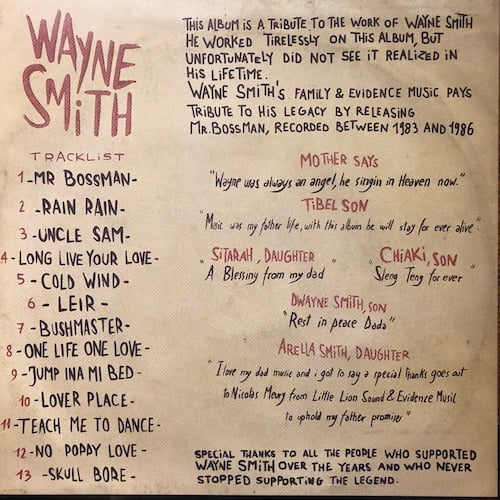 WAYNE
SMiTH
TRACKLIST
1-MR BOSSMAN-
2 -RAIN RAIN-
3 -UNCLE SAM-
4-LONG LIVE YOUR LOVE-
5 -COLD WIND-
6 - LEIR -
7- BUSHMASTER-
8-ONE LIFE ONE LOVE-
9 -JUMP INA MI BED-
10-LOVER PLACE-
11-TEACH ME TO DANCE-
12-NO POPPY LOVE-
13 -SKULL BORE-
THIS ALBUM IS A TRIBUTE TO THE WORK OF WAYNE SMITH
HE WORKED TIRELESSLY ON THIS ALBUM, BUT
UNFORTUNATELY DID NOT SEE IT REALIZED IN
HIS LIFETIME.
WAYNE SMITH'S FAMILY & EVIDENCE MUSIC PAYS
TRIBUTE TO HIS LEGACY BY RELEASING
MR.BOSSMAN, RECORDED BETWEEN 1983 AND 1986
MOTHER SAYS
"Wayne was always an angel, he singin in Heaven now."
TiBEL SON
"Music was my father life, with this album he will stay for ever alive"
SiTARAH, DAUGHTER
A Blessing from my dad
CHiAKi, SON
Sleng Teng for ever
DWAYNE SMiTH, SON
"Rest in peace Dada"
ARELLA SMiTH, DAUGHTER
"I love my dad music and i got to say a special thanks goes out
to Nicolas Meury from Little Lion Sound & Evidence Music
to uphold my father promises"
SPECIAL THANKS TO ALL THE PEOPLE WHO SUPPORTED
WAYNE SMITH OVER THE YEARS AND WHO NEVER
STOPPED SUPPORTING THE LEGEND.